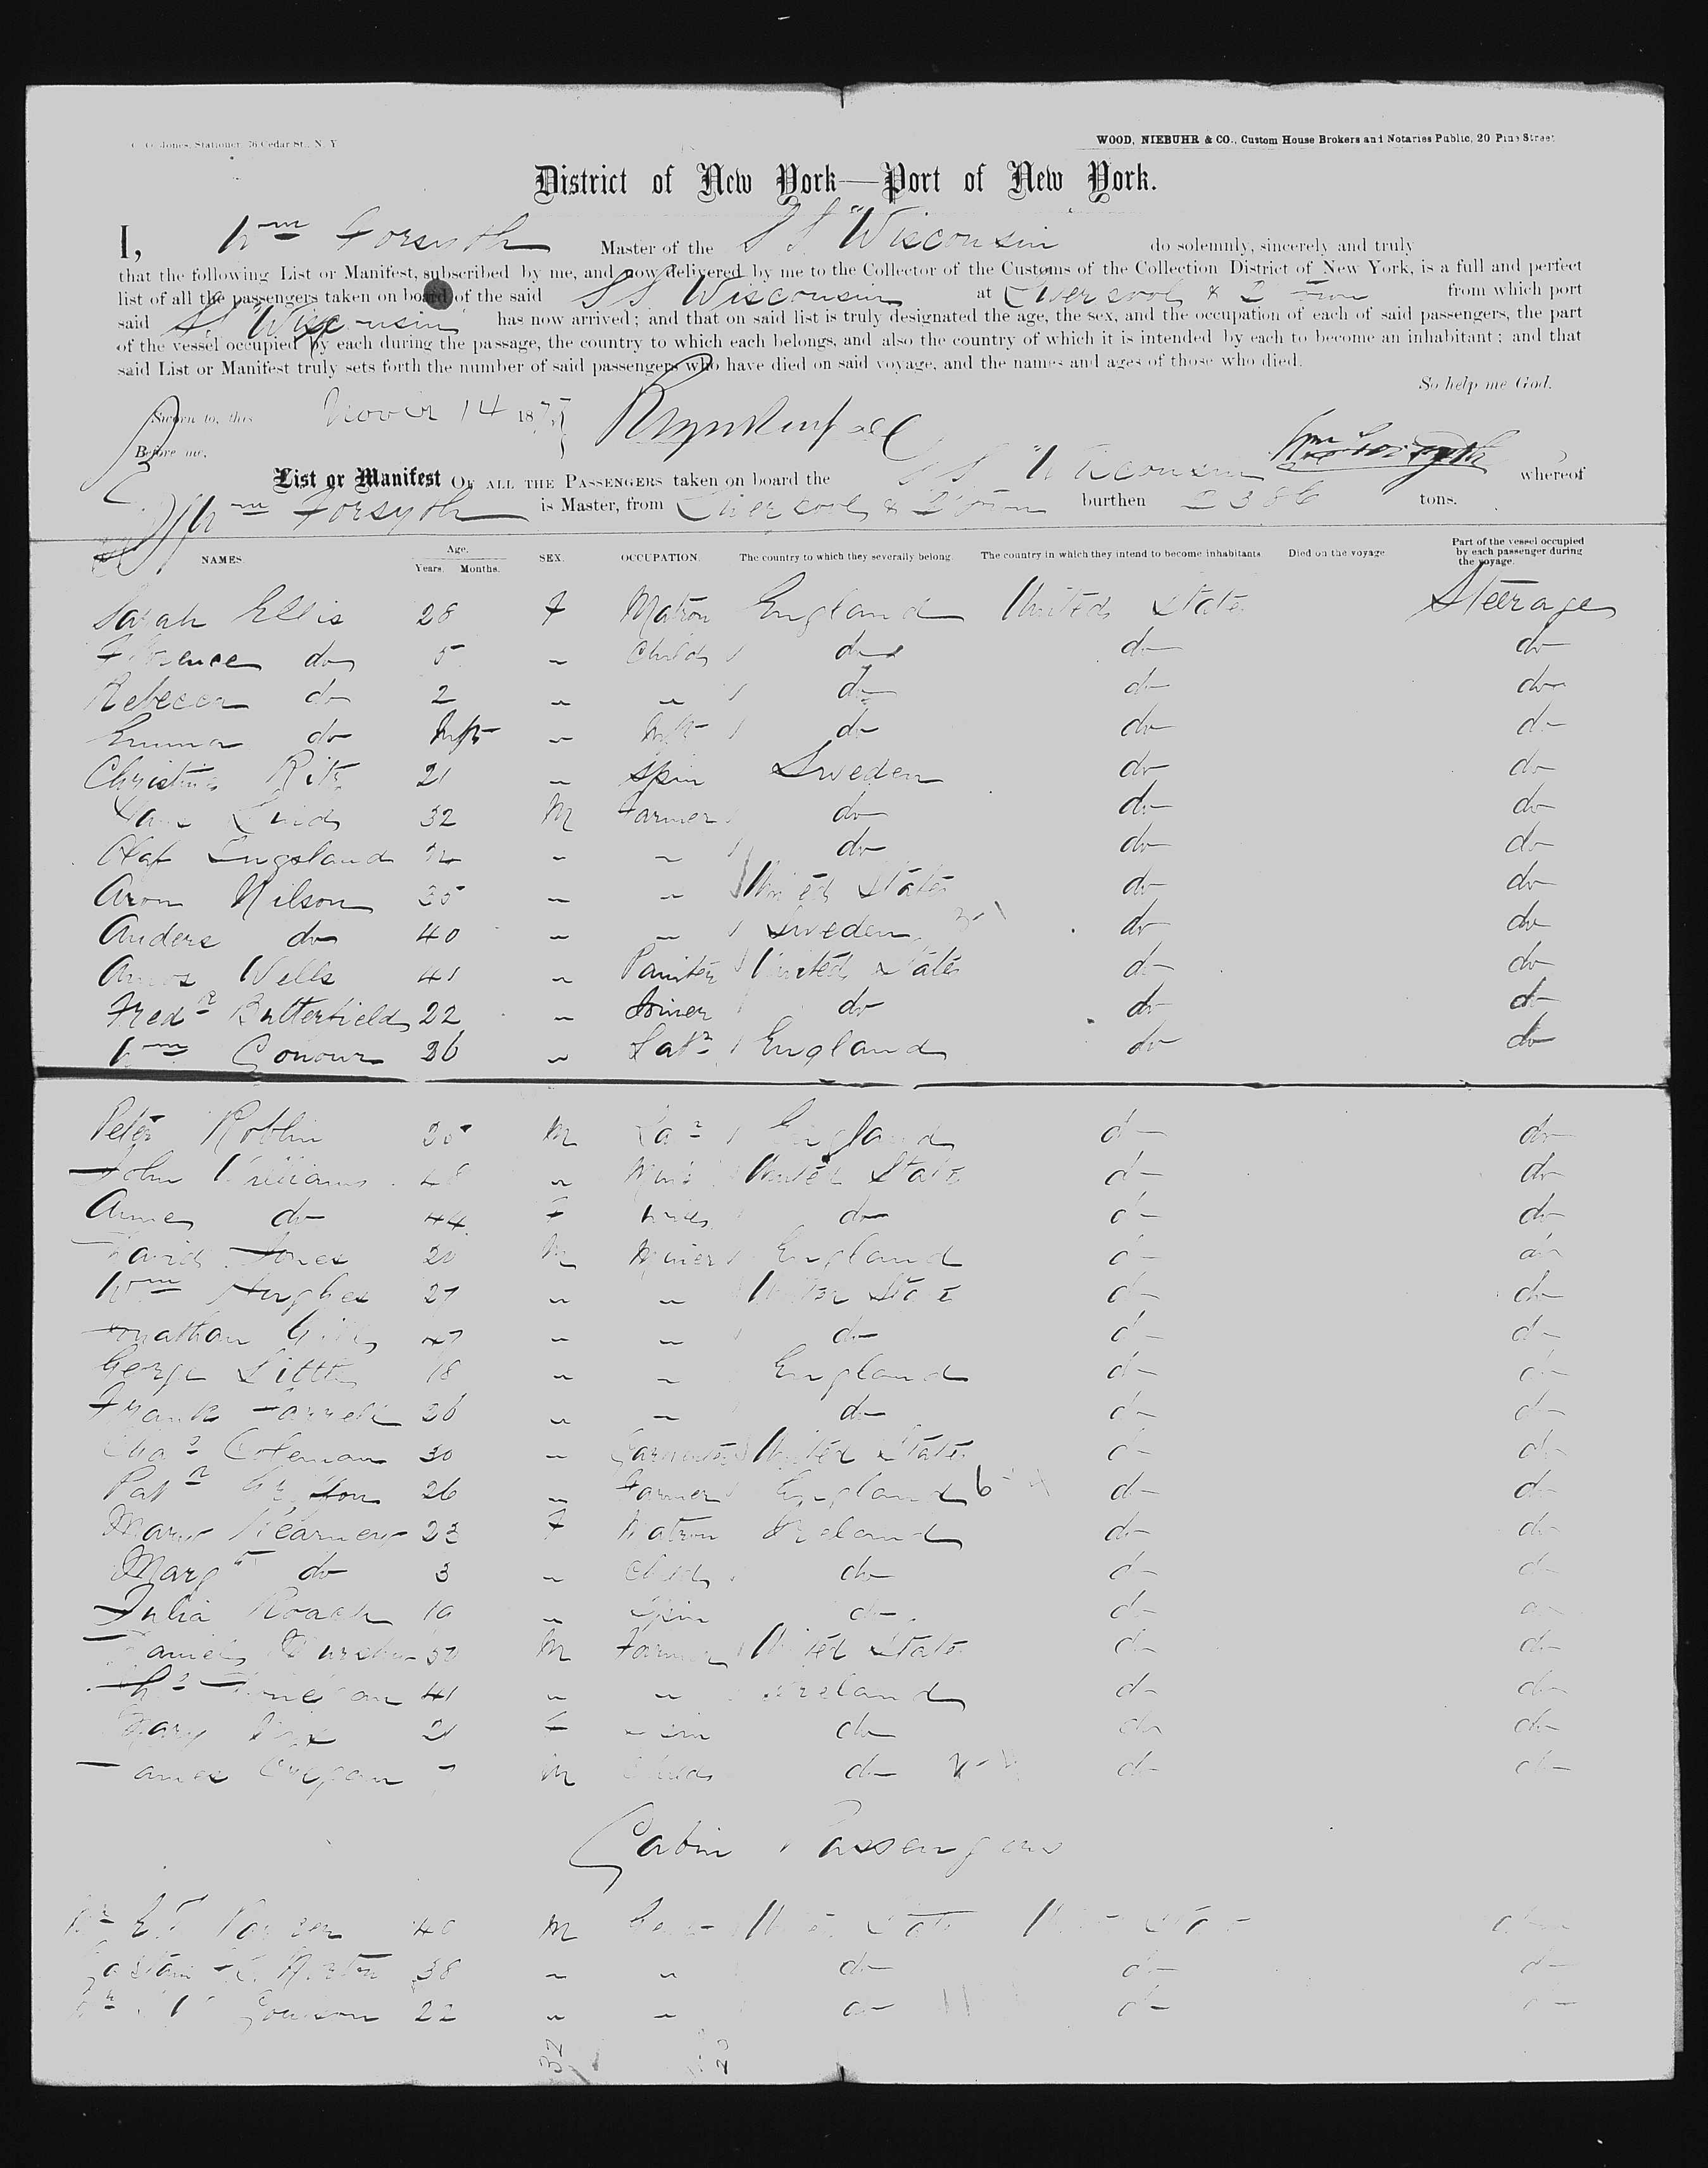 C. G. Jones, Stationer, 76 Cedar St., N. Y
WOOD, NIEBUHR & CO., Custom House Brokers and Notaries Public, 20 Pine Street
District of New York—Port of New York.
I, Wm Forsyth Master of the SS "Wisconsin do solemnly, sincerely and truly
that the following List or Manifest, subscribed by me, and now delivered by me to the Collector of the Customs of the Collection District of New York, is a full and perfect
list of all the passengers taken on board of the said SS Wisconsin at Liverpool & from which port
said SS "Wisconsin" has now arrived; and that on said list is truly designated the age, the sex, and the occupation of each of said passengers, the part
of the vessel occupied by each during the passage, the country to which each belongs, and also the country of which it is intended by each to become an inhabitant; and that
said List or Manifest truly sets forth the number of said passengers who have died on said voyage, and the names and ages of those who died.
So help me God.
Sworn to, this Novbr 14 187
Before me,
Wm Forsyth
List or Manifest OF ALL THE PASSENGERS taken on board the SS "Wisconsin whereof
Wm Forsyth is Master, from Liverpool & burthen 2386 tons.
NAMES. Age. Years. Months. SEX. OCCUPATION. The country to which they severally belong. The country in which they intend to become inhabitants. Died on the voyage. Part of the vessel occupied by each passenger during the voyage.
Sarah Ellis 28 F Matron England United States Steerage
Florence do 5 " Child do do do
Rebecca do 2 " " do do do
Emma do Inft " Inft do do do
Christina 21 " Spin Sweden do do
32 M Farmer do do do
Olaf Lugsland " " do do do
Aron Nilson 35 " " United States do do
Anders do 40 " " Sweden do do
Amos Wells 41 " Painter United States do do
Fredk Butterfield 22 " Joiner do do do
Wm Conour 36 " Labr England do do
Peter Roblin M Labr England do do
John Williams 48 " United States do do
Anne do 44 F Wife do do do
David Jones 20 M Miner England do do
Wm Hughes 27 " " United States do do
Jonathan 47 " " do do do
George Little 18 " " England do do
Frank Farrell 26 " " do do do
Chas Coleman 30 " Carpenter United States do do
Patk 26 " Farmer England do do
Mary Kearney 23 F Matron Ireland do do
Margt do 3 " Child do do do
Julia Roach 19 " Spin do do do
Daniel M Farmer United States do do
41 " " Ireland do do
Mary 21 F Spin do do do
James 7 M Child do do do
Cabin Passengers
Mr E. T. 40 M United States United States
38 " " do do do
Mr 22 " " do do do
32